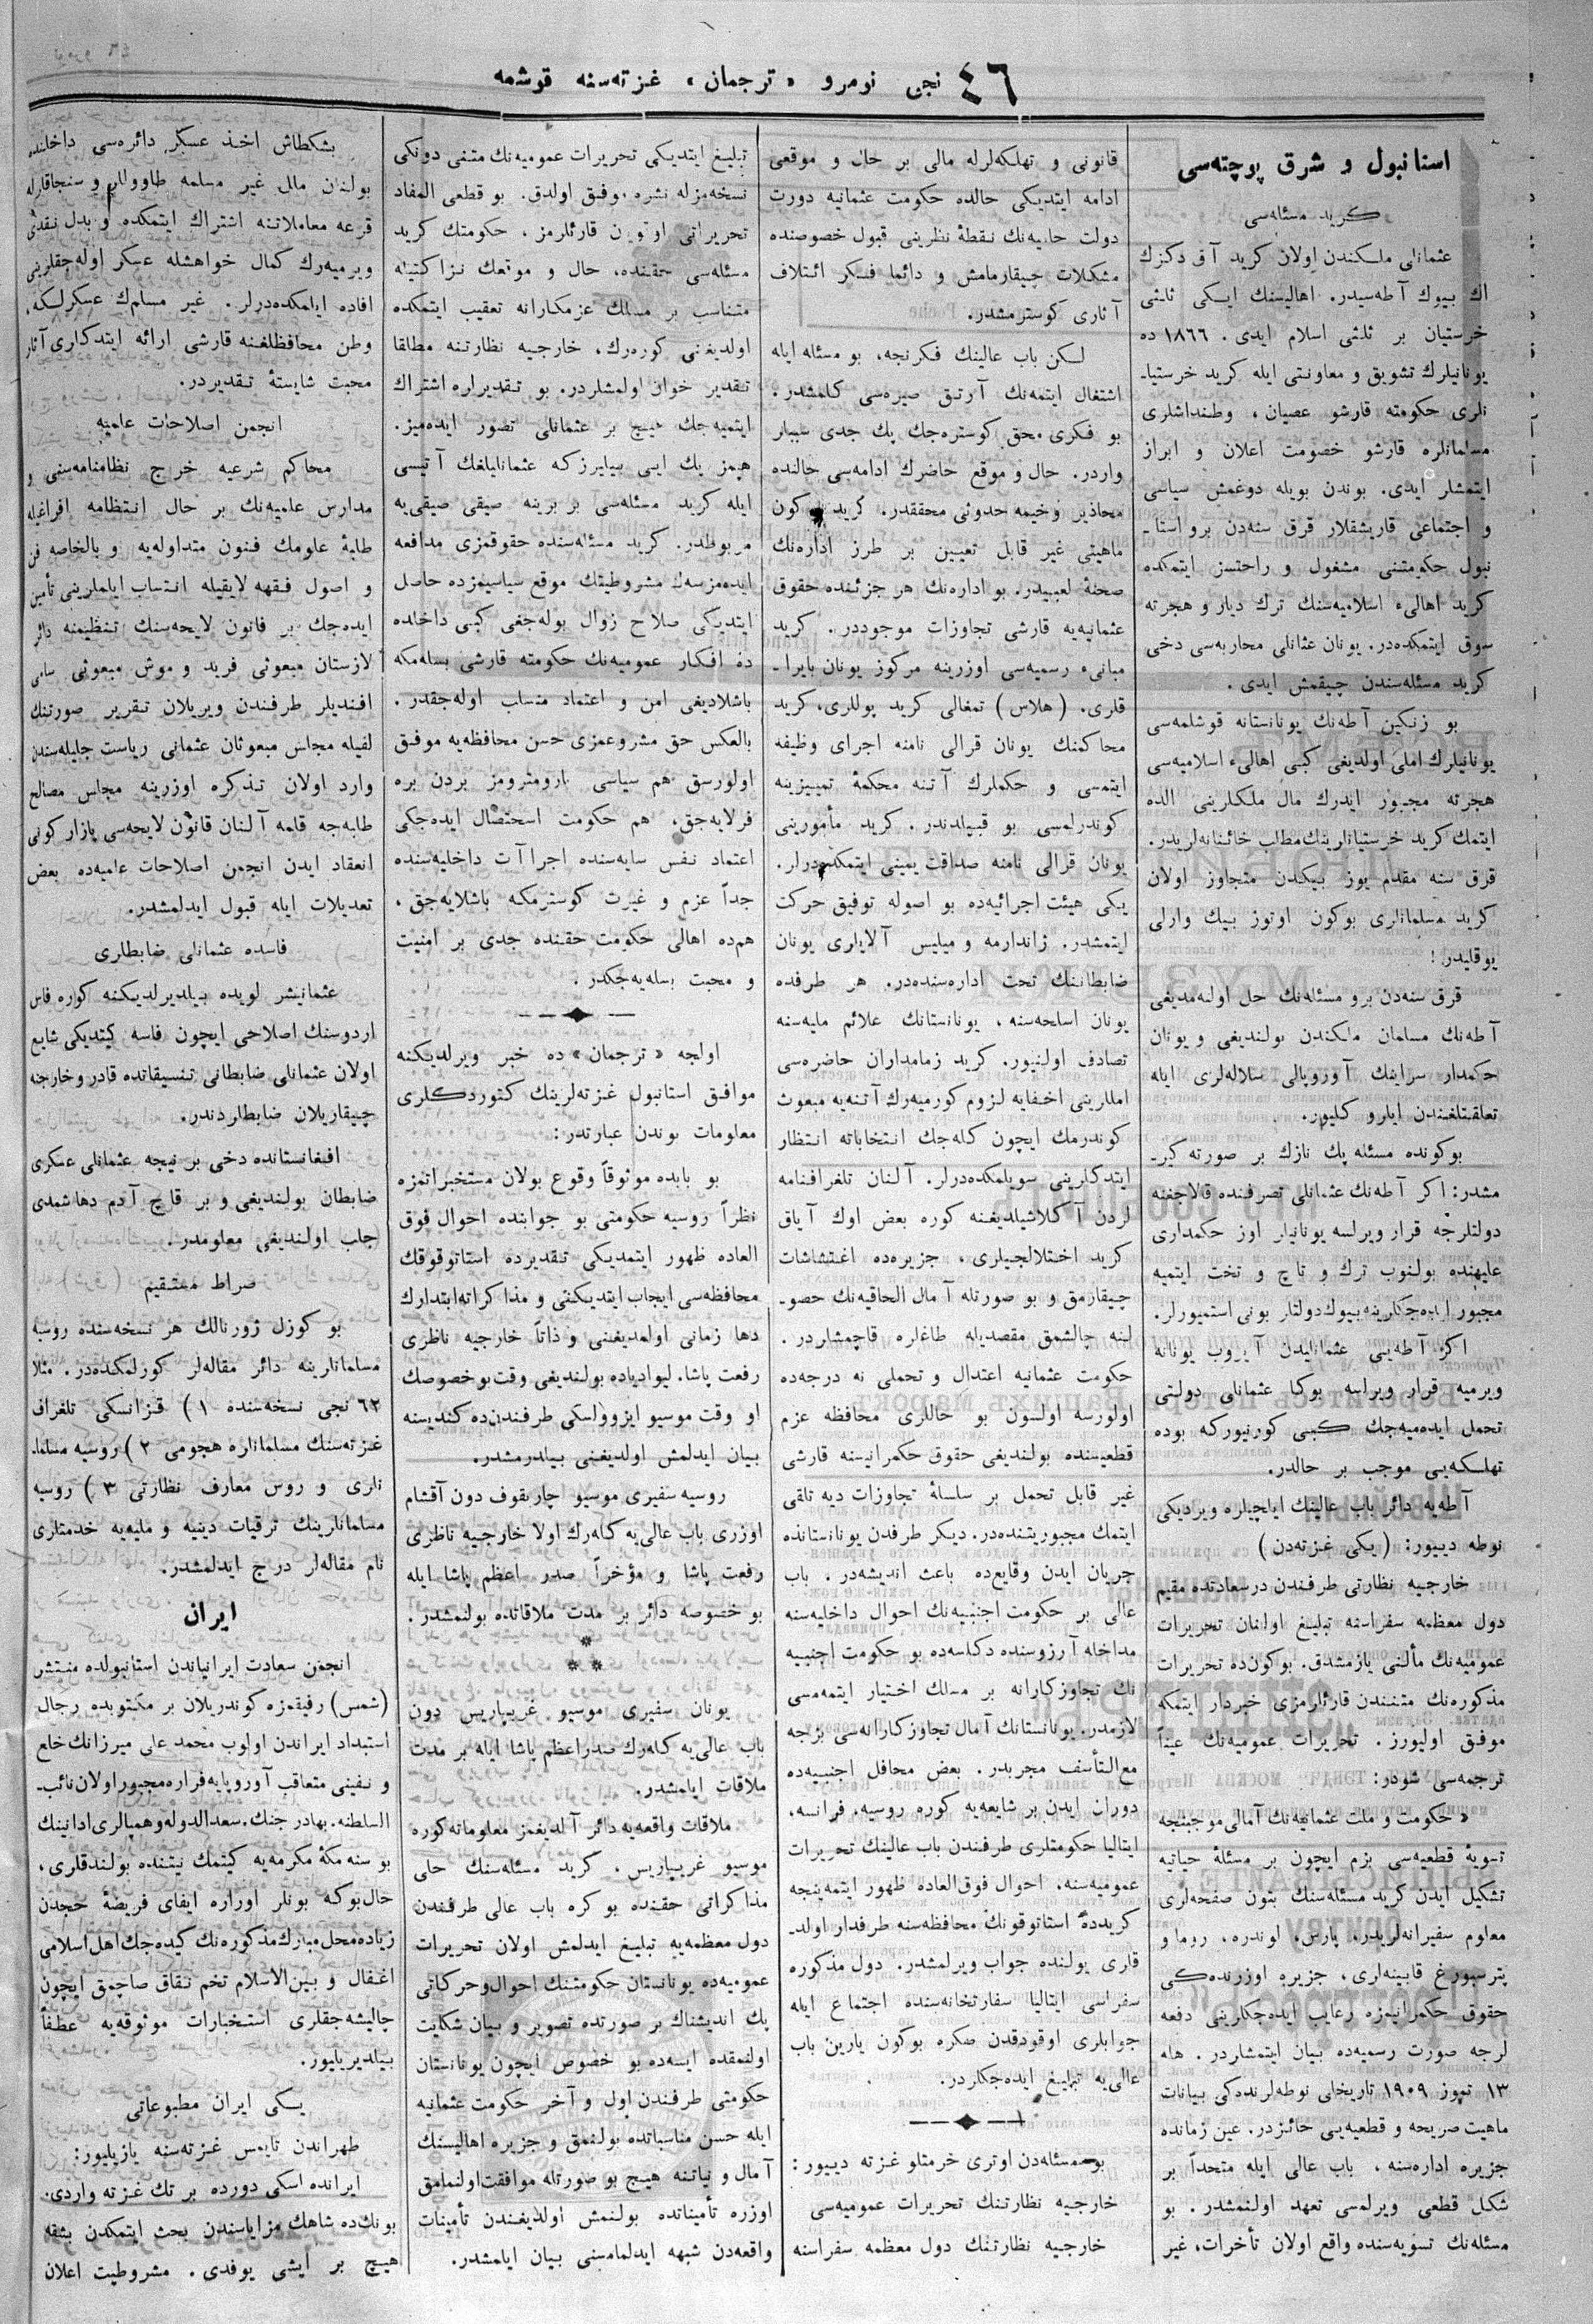 ٤٦ نجی نومرو «ترجمان» غزته‌سنه قوشمه
استانبول و شرق پوچته‌سی
كرید مسئله‌سی
عثمانلی ملكندن اولان كرید آق دكزك
اك بیوك آطه‌سیدر. اهالیسنك ایكی ثلثی
خرستیان بر ثلثی اسلام ایدی. ١٨٦٦ ده
یونانیلرك تشویق و معاونتی ایله كرید خرستیا-
نلری حكومته قارشو عصیان، وطنداشلری
مسلمانلره قارشو خصومت اعلان و ابراز
ایتمشلر ایدی. بوندن بویله دوغمش سیاسی
و اجتماعی قاریشقلار قرق سنه‌دن برو استا-
نبول حكومتنی مشغول و راحتسز ایتمكده
كرید اهالیء اسلامیه‌سنك ترك دیار و هجرته
سوق ایتمكده‌در. یونان عثمانلی محاربه‌سی دخی
كرید مسئله‌سندن چیقمش ایدی.
بو زنكین آطه‌نك یونانستانه قوشلمه‌سی
یونانیلرك املی اولدیغی كبی اهالیء اسلامیه‌سی
هجرته مجبور ایدرك مال ملكلرینی الده
ایتمك كرید خرستیانلرینك مطلب خائنانه‌لریدر.
قرق سنه مقدم یوز بیكدن متجاوز اولان
كرید مسلمانلری بوكون اوتوز بیك وارلی
یوقلیدر!
قرق سنه‌دن برو مسئله‌نك حل اولنه‌مدیغی
آطه‌نك مسلمان ملكندن بولندیغی و یونان
حكمدار سراینك آوروپالی سلاله‌لری ایله
تعلقتلغندن ایلرو كلیور.
بوكونده مسئله پك نازك بر صورته كیر-
مشدر: اكر آطه‌نك عثمانلی تصرفنده قالاجغنه
دولتلرجه قرار ویرلسه یونانیلر اوز حكمداری
علیهنده بولنوب ترك و تاج و تخت ایتمیه
مجبور ایده‌جكلرینه بیوك دولتلر بونی استمیورلر.
اكر آطه‌یی عثمانلیدن آیروب یونانه
ویرمیه قرار ویرلسه بوكا عثمانلی دولتی
تحمل ایده‌میه‌جك كبی كورنیوركه بوده
تهلكه‌یی موجب بر حالدر.
آطه‌یه دائر باب عالینك ایلچیلره ویردیكی
نوطه دییور: (یكی غزته‌دن)
خارجیه نظارتی طرفندن درسعادتده مقیم
دول معظمه سفراسنه تبلیغ اولنان تحریرات
عمومیه‌نك مألنی یازمشدق. بوكون‌ده تحریرات
مذكوره‌نك متنندن قارئلرمزی خبردار ایتمكه
موفق اولیورز. تحریرات عمومیه‌نك عیناً
ترجمه‌سی شودر:
«حكومت و ملت عثمانیه‌نك آمالی موجبنجه
تسویهٔ قطعیه‌سی بزم ایچون بر مسئلهٔ حیاتیه
تشكیل ایدن كرید مسئله‌سنك بتون صفحه‌لری
معلوم سفیرانه‌لریدر. پارس، لوندره، روما و
پترسبورغ قابینه‌لری، جزیره اوزرنده‌كی
حقوق حكمرانیمزه رعایت ایده‌جكلرینی دفعه
لرجه صورت رسمیه‌ده بیان ایتمشلردر. هله
١٣ تموز ١٩٠٩ تاریخلی نوطه‌لرنده‌كی بیانات
ماهیت صریحه و قطعیه‌یی حائزدر. عین زمانده
جزیره اداره‌سنه، باب عالی ایله متحداً بر
شكل قطعی ویرلمسی تعهد اولنمشدر. بو
مسئله‌نك تسویه‌سنده واقع اولان تأخرات، غیر
قانونی و تهلكه‌لرله مالی بر حال و موقعی
ادامه ایتدیكی حالده حكومت عثمانیه دورت
دولت حامیه‌نك نقطهٔ نظرینی قبول خصوصنده
مشكلات چیقارمامش و دائما فكر ائتلاف
آثاری كوسترمشدر.
لكن باب عالینك فكرنجه، بو مسئله ایله
اشتغال ایتمه‌نك آرتق صیره‌سی كلمشدر.
بو فكری محق كوستره‌جك پك جدی سببلر
واردر. حال و موقع حاضرك ادامه‌سی حالنده
محاذیر وخیمه حدوثی محققدر. كرید بوكون
ماهیتی غیر قابل تعیین بر طرز اداره‌نك
صحنهٔ لعبیدر. بو اداره‌نك هر جزئنده حقوق
عثمانیه‌یه قارشی تجاوزات موجوددر. كرید
مبانیء رسمیه‌سی اوزرینه مركوز یونان بایرا-
قلری. (هلاس) تمغالی كرید پوللری، كرید
محاكمنك یونان قرالی نامنه اجرای وظیفه
ایتمسی و حكملرك آتنه محكمهٔ تمییزینه
كوندرلمسی بو قبیلدندر. كرید مأمورینی
یونان قرالی نامنه صداقت یمینی ایتمكده‌درلر.
یكی هیئت اجرائیه‌ده بو اصوله توفیق حركت
ایتمشدر. ژاندارمه و میلیس آلایلری یونان
ضابطاننك تحت اداره‌سنده‌در. هر طرفده
یونان اسلحه‌سنه، یونانستانك علائم ملیه‌سنه
تصادف اولنیور. كرید زمامداران حاضره‌سی
امللرینی اخفایه لزوم كورمیه‌رك آتنه‌یه مبعوث
كوندرمك ایچون كله‌جك انتخاباته انتظار
ایتدكلرینی سویلمكده‌درلر. آلنان تلغرافنامه
لردن آكلاشیلدیغنه كوره بعض اوك آیاق
كرید اختلالجیلری، جزیره‌ده اغتشاشات
چیقارمق و بو صورتله آمال الحاقیه‌نك حصو-
لنه چالشمق مقصدیله طاغلره قاچمشلردر.
حكومت عثمانیه اعتدال و تحملی نه درجه‌ده
اولورسه اولسون بو حاللری محافظه عزم
قطعیسنده بولندیغی حقوق حكمرانیسنه قارشی
غیر قابل تحمل بر سلسلهٔ تجاوزات دیه تلقی
ایتمك مجبوریتنده‌در. دیكر طرفدن یونانستانده
جریان ایدن وقایع‌ده باعث اندیشه‌در. باب
عالی بر حكومت اجنبیه‌نك احوال داخلیه‌سنه
مداخله آرزوسنده دكلسه‌ده بو حكومت اجنبیه
نك تجاوزكارانه بر مسلك اختیار ایتمه‌مسی
لازمدر. یونانستانك آمال تجاوزكارانه‌سی بزجه
مع‌التأسف مجربدر. بعض محافل اجنبیه‌ده
دوران ایدن بر شایعه‌یه كوره روسیه، فرانسه،
ایتالیا حكومتلری طرفندن باب عالینك تحریرات
عمومیه‌سنه، احوال فوق‌العاده ظهور ایتمه‌ینجه
كریدده استاتوقونك محافظه‌سنه طرفدار اولد-
قلری یولنده جواب ویرلمشدر. دول مذكوره
سفراسی ایتالیا سفارتخانه‌سنده اجتماع ایله
جوابلری اوقودقدن صكره بوكون یارین باب
عالی‌یه تبلیغ ایده‌جكلردر.
بو مسئله‌دن اوتری خرمتلو غزته دییور:
خارجیه نظارتنك تحریرات عمومیه‌سی
خارجیه نظارتنك دول معظمه سفراسنه
تبلیغ ایتدیكی تحریرات عمومیه‌نك متنی دونكی
نسخه‌مزله نشره موفق اولدق. بو قطعی المفاد
تحریراتی اوقویان قارئلرمز، حكومتك كرید
مسئله‌سی حقنده، حال و موقعك نزاكتیله
متناسب بر مسلك عزمكارانه تعقیب ایتمكده
اولدیغنی كوره‌رك، خارجیه نظارتنه مطلقا
تقدیر خوان اولمشلردر. بو تقدیرلره اشتراك
ایتمیه‌جك هیچ بر عثمانلی تصور ایده‌میز.
هپمز پك ایی بیلیرزكه عثمانلیلغك آتیسی
ایله كرید مسئله‌سی بر برینه صیقی صیقی‌یه
مربوطدر. كرید مسئله‌سنده حقوقمزی مدافعه
ایده‌مزسه‌ك مشروطیتك موقع سیاسیمزده حاصل
ایتدیكی صلاح زوال بوله‌جغی كبی داخلده
ده افكار عمومیه‌نك حكومته قارشی بسله‌مكه
باشلادیغی امن و اعتماد منسلب اوله‌جقدر.
بالعكس حق مشروعمزی حسن محافظه‌یه موفق
اولورسق هم سیاسی بارومترومز بردن بره
فرلایه‌جق، هم حكومت استحصال ایده‌جكی
اعتماد نفس سایه‌سنده اجراآت داخلیه‌سنده
جداً عزم و غیرت كوسترمكه باشلایه‌جق،
هم‌ده اهالی حكومت حقنده جدی بر امنیت
و محبت بسله‌یه‌جكدر.
اولجه «ترجمان» ده خبر ویرلدیكنه
موافق استانبول غزته‌لرینك كتوردكلری
معلومات بوندن عبارتدر:
بو بابده موثوقاً وقوع بولان مستخبراتمزه
نظراً روسیه حكومتی بو جوابنده احوال فوق
العاده ظهور ایتمدیكی تقدیرده استاتوقوقك
محافظه‌سی ایجاب ایتدیكنی و مذاكراته ابتدارك
دها زمانی اولمدیغنی و ذاتاً خارجیه ناظری
رفعت پاشا. لیوادیاده بولندیغی وقت بو خصوصك
او وقت موسیو ایزوولسكی طرفندن‌ده كندیسنه
بیان ایدلمش اولدیغنی بیلدرمشدر.
روسیه سفیری موسیو چاریقوف دون آقشام
اوزری باب عالی‌یه كله‌رك اولا خارجیه ناظری
رفعت پاشا و مؤخراً صدر اعظم پاشا ایله
بو خصوصه دائر بر مدت ملاقاتده بولنمشدر.
* * *
یونان سفیری موسیو غریپاریس دون
باب عالی‌یه كله‌رك صدراعظم پاشا ایله بر مدت
ملاقات ایلمشدر.
ملاقات واقعه‌یه دائر آلدیغمز معلوماته كوره
موسیو غریپاریس، كرید مسئله‌سنك حلی
مذاكراتی حقنده بو كره باب عالی طرفندن
دول معظمه‌یه تبلیغ ایدلمش اولان تحریرات
عمومیه‌ده یونانستان حكومتنك احوال و حركاتی
پك اندیشناك بر صورتده تصویر و بیان شكایت
اولنمقده ایسه‌ده بو خصوص ایچون یونانستان
حكومتی طرفندن اول و آخر حكومت عثمانیه
ایله حسن مناسباتده بولنمق و جزیره اهالیسنك
آمال و نیاتنه هیچ بو صورتله موافقت اولنمامق
اوزره تأمیناتده بولنمش اولدیغندن تأمینات
واقعه‌دن شبهه ایدلمامسنی بیان ایلمشدر.
بشكطاش اخذ عسكر دائره‌سی داخلنده
بولنان ملل غیر مسلمه طاووللر و سنجاقلرله
قرعه معاملاتنه اشتراك ایتمكده و بدل نقدی
ویرمیه‌رك كمال خواهشله عسكر اوله‌جقلرینی
افاده ایلمكده‌درلر. غیر مسلمك عسكرلكه،
وطن محافظلغنه قارشی ارائه ایتدكلری آثار
محبت شایستهٔ تقدیردر.
انجمن اصلاحات علمیه
محاكم شرعیه خرج نظامنامه‌سنی و
مدارس علمیه‌نك بر حال انتظامه افراغیله
طلبهٔ علومك فنون متداوله‌یه و بالخاصه فن
و اصول فقهه لایقیله انتساب ایلملرینی تأمین
ایده‌جك بر قانون لایحه‌سنك تنظیمنه دائر
لازستان مبعوثی فرید و موش مبعوثی سامی
افندیلر طرفندن ویریلان تقریر صورتنك
لفیله مجلس مبعوثان عثمانی ریاست جلیله‌سندن
وارد اولان تذكره اوزرینه مجلس مصالح
طلبه‌جه قلمه آلنان قانون لایحه‌سی پازار كونی
انعقاد ایدن انجمن اصلاحات علمیه‌ده بعض
تعدیلات ایله قبول ایدلمشدر.
فاسده عثمانلی ضابطلری
عثمانیشر لویده بیلدیرلدیكنه كوره فاس
اردوسنك اصلاحی ایچون فاسه كیتدیكی شایع
اولان عثمانلی ضابطانی تنسیقاتده قادر و خارجنه
چیقاریلان ضابطلردندر.
افغانستانده دخی بر نیجه عثمانلی عسكری
ضابطان بولندیغی و بر قاچ آدم دها شمدی
جلب اولندیغی معلومدر.
صراط مستقیم
بو كوزل ژورنالك هر نسخه‌سنده روسیه
مسلمانلرینه دائر مقاله‌لر كورلمكده‌در. مثلا
٦٢ نجی نسخه‌سنده ١) قزانسكی تلغراف
غزته‌سنك مسلمانلره هجومی ٢) روسیه مسلما-
نلری و روس معارف نظارتی ٣) روسیه
مسلمانلرینك ترقیات دینیه و ملیه‌یه خدمتلری
نام مقاله‌لر درج ایدلمشدر.
ایران
انجمن سعادت ایرانیاندن استانبولده منتشر
(شمس) رفیقمزه كوندریلان بر مكتوبده رجال
استبداد ایراندن اولوب محمد علی میرزانك خلع
و نفینی متعاقب آوروپایه فراره مجبور اولان نائب-
السلطنه. بهادر جنك. سعد الدوله و همپالری ادانینك
بو سنه مكهٔ مكرمه‌یه كیتمك نیتنده بولندقلری،
حال بوكه بونلر اوراره ایفای فریضهٔ حجدن
زیاده محل مبارك مذكوره‌نك كیده‌جك اهل اسلامی
اغفال و بین الاسلام تخم نفاق صاچمق ایچون
چالیشه‌جقلری استخبارات موثوقه‌یه عطفاً
بیلدیریلیور.
یكی ایران مطبوعاتی
طهراندن تایمس غزته‌سنه یازیلیور:
ایرانده اسكی دورده بر تك غزته واردی.
بونك‌ده شاهك مزایاسندن بحث ایتمكدن بشقه
هیچ بر ایشی یوقدی. مشروطیت اعلان